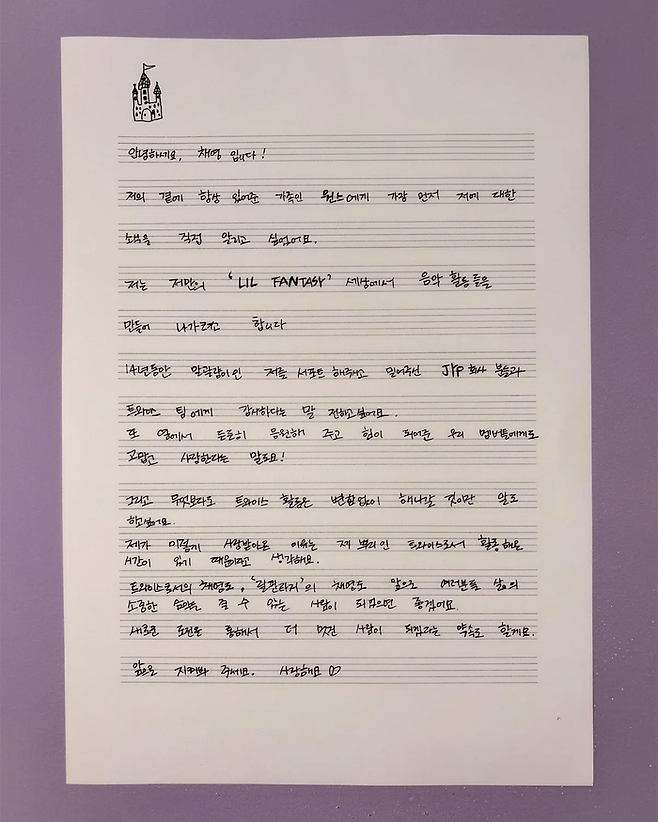 안녕하세요, 채영 입니다!
저의 곁에 항상 있어준 가족인 원스에게 가장 먼저 저에 대한
소식을 직접 알리고 싶었어요.
저는 저만의 'LIL FANTASY' 세상에서 음악 활동들을
만들어 나가려고 합니다
14년동안 말괄량이인 저를 서포트 해주시고 밀어주신 JYP 회사 분들과
트와이스 팀에게 감사하다는 말 전하고싶어요.
또 옆에서 든든히 응원해 주고 힘이 되어준 우리 멤버들에게도
고맙고 사랑한다는 말도요!
그리고 무엇보다도 트와이스 활동은 변함없이 해나갈 것이란 말도
하고싶어요.
제가 이렇게 사랑받아온 이유는 제 뿌리인 트와이스로서 활동해온
시간이 있기 때문이라고 생각해요.
트와이스로서의 채영도, '릴판타지'의 채영도 앞으로 여러분들 삶의
소중한 순간들 줄 수 있는 사람이 되었으면 좋겠어요.
새로운 도전을 통해서 더 멋진 사람이 되겠다는 약속도 할게요.
앞으로 지켜봐 주세요. 사랑해요♡